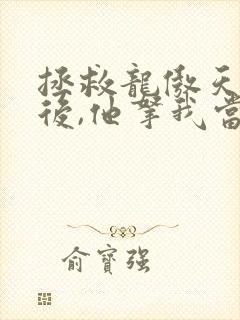 拯救龍傲天
後,他拏我當
俞寶強